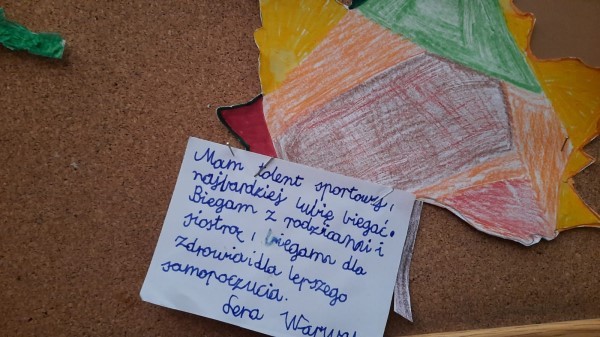 Mam talent sportowy,
najbardziej lubię biegać.
Biegam z rodzicami i
siostrą, biegamy dla
zdrowia i dla lepszego
samopoczucia.